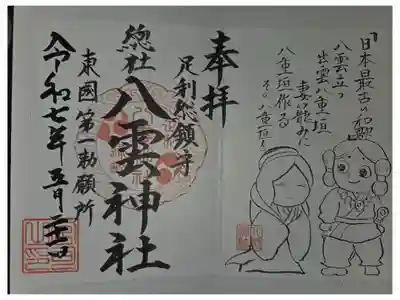 「日本最古の和歌
八雲立つ
出雲八重垣
妻籠みに
八重垣作る
その八重垣を
奉拝
足利総鎮守
總社八雲神社
東國第一勅願所
令和七年五月